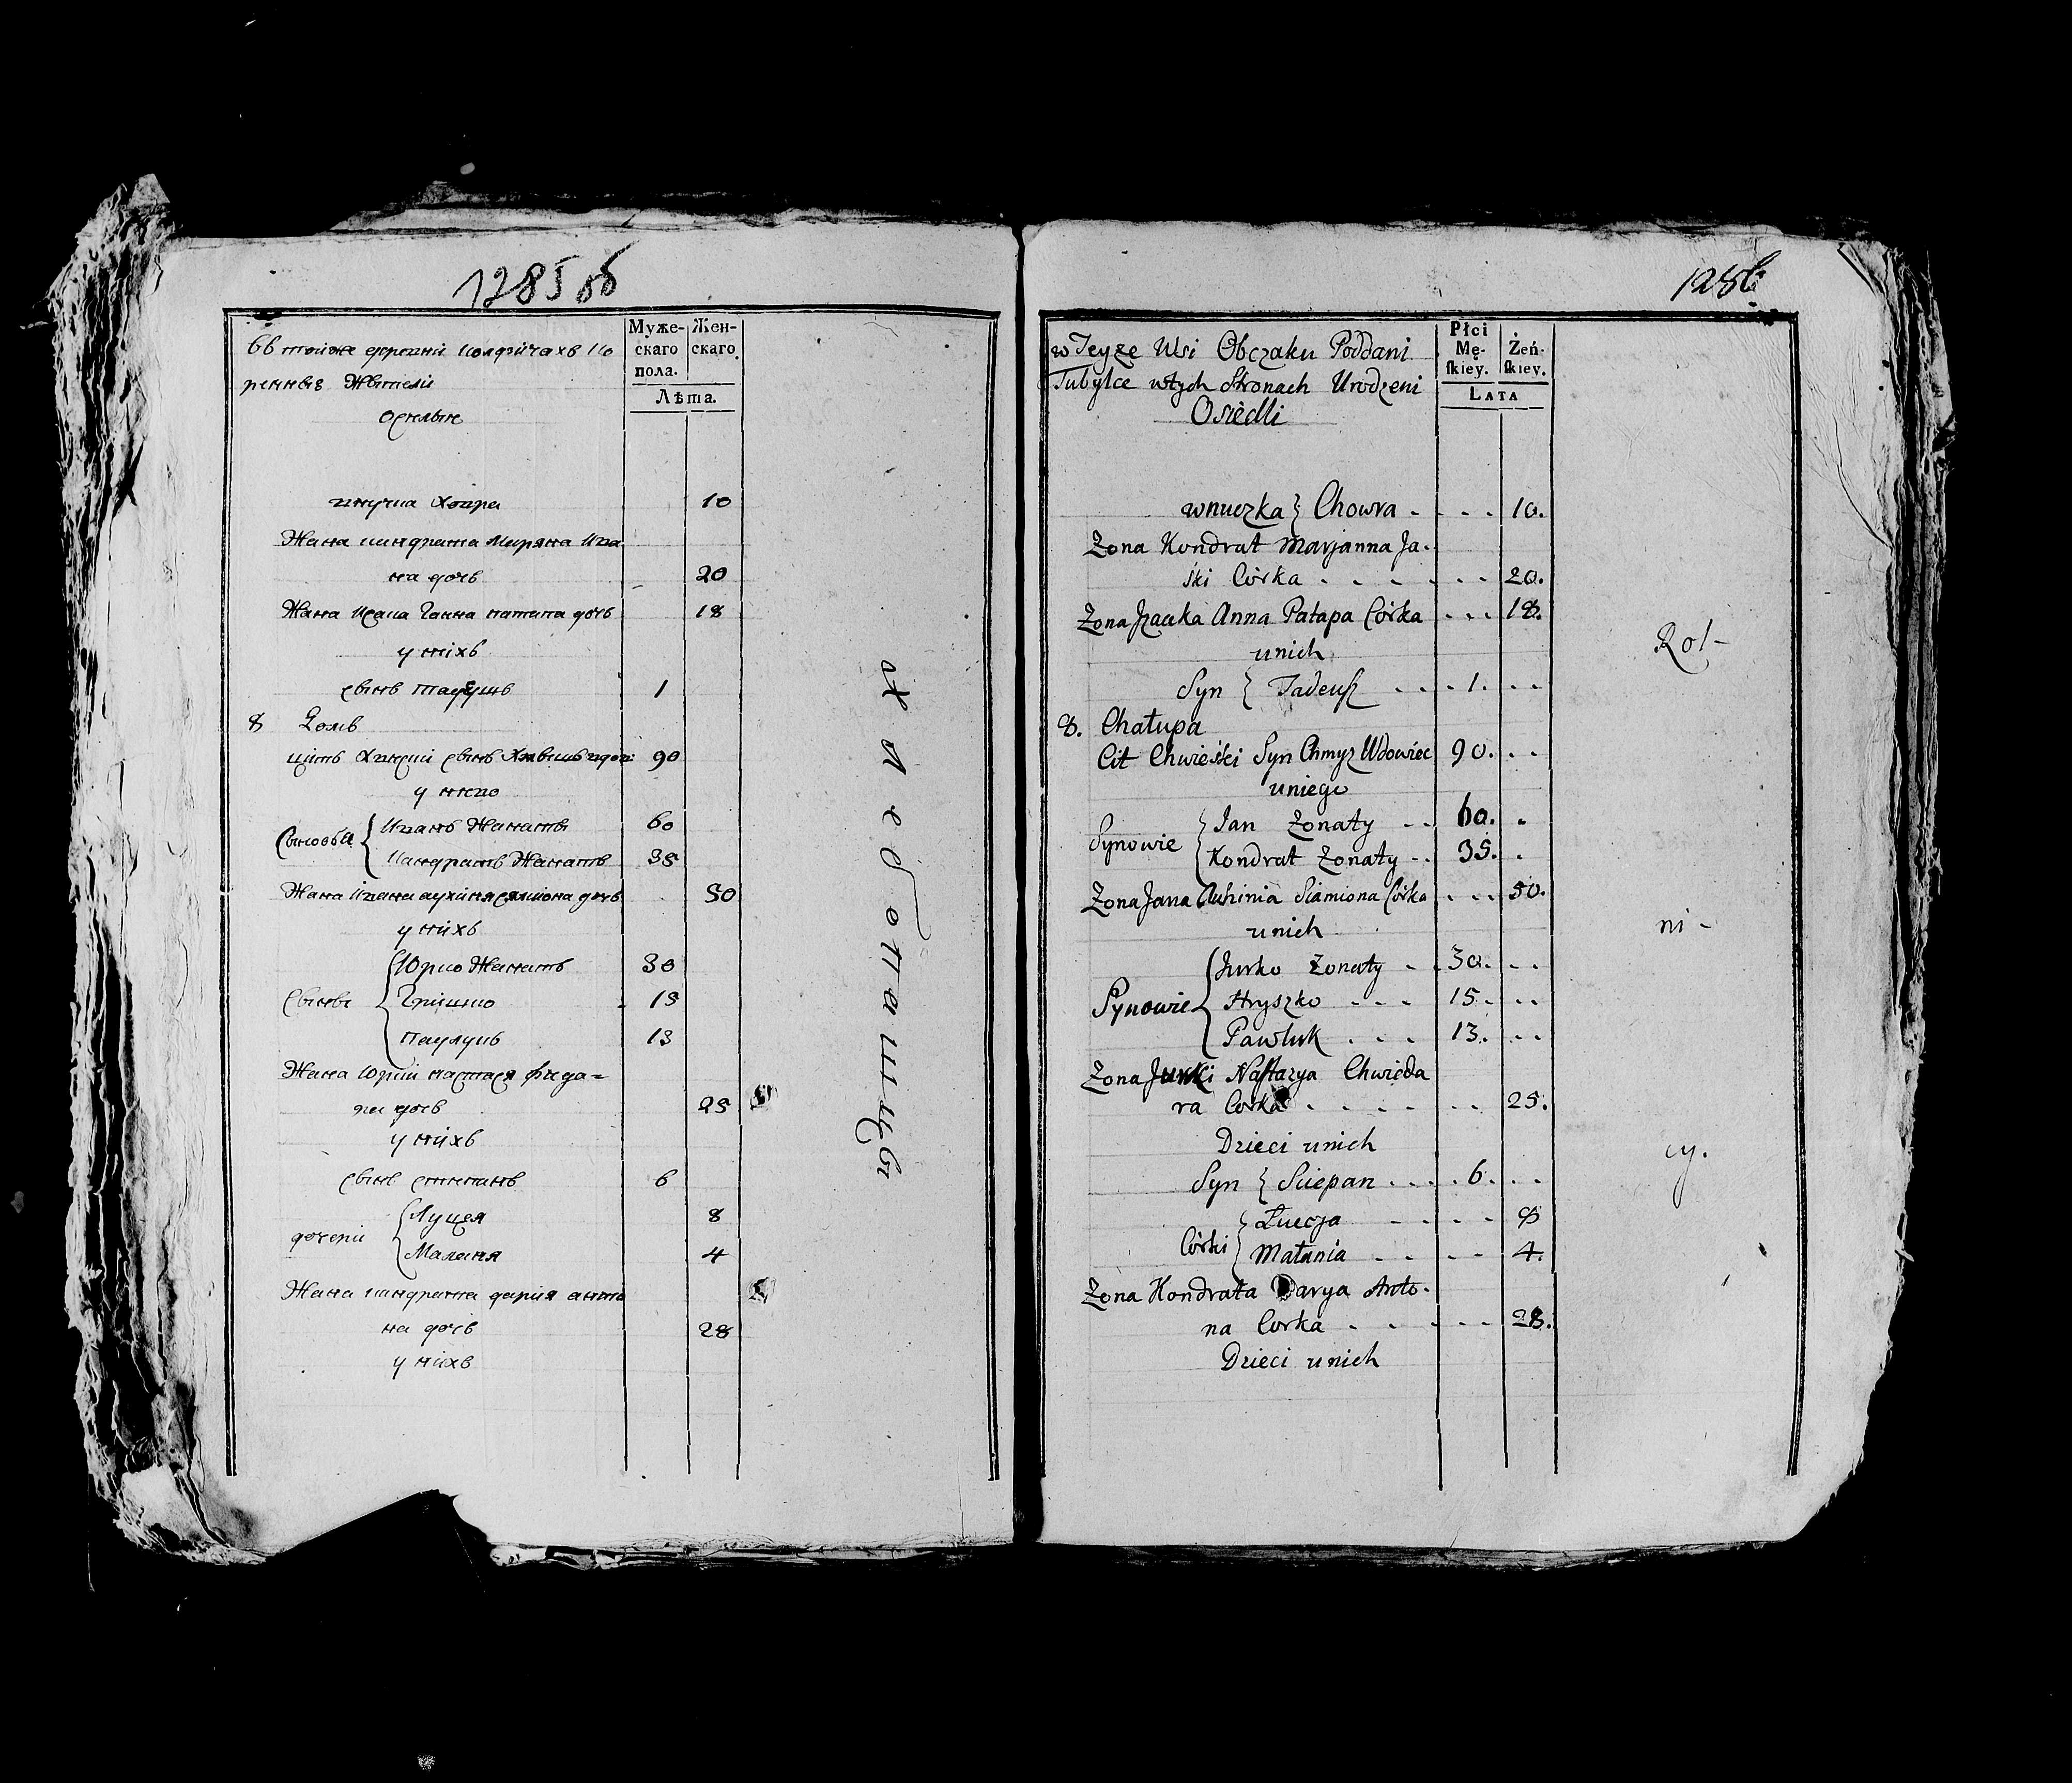 1285 об
Муже-
скаго
пола.
Жен-
скаго.
Лѣта.
въ тойже деревни
ренныя Жители
оселые
внучка Ховра 10
Жана кандрата Маряна Ива
на дочь 20
Жана Исака Ганна патапа дочь 18
у ніхъ
сынъ тадеушъ 1
8 Домъ
цитъ сынъ 90
у него
Сыновья { Иванъ Жанатъ 60
Кандратъ Жанатъ 35
Жана Ивана аухиня сямиона дочь 50
у ніхъ
Сыны { Юрко Жанатъ 30
Гришко 15
паулукъ 13
Жана Юрки настася фида=
ра дочь 25
у ніхъ
сынъ стипанъ 6
дочери { Луцея 8
Маланя 4
Жана кандрата дария анто
на дочь 28
у ніхъ
хлебопашцы
1286
w Teyże Wsi Obczaku Poddani
Tubylce wtych Stronach Urodzeni
Osiedli
Płci
Mę-
skiey.
Żeń-
skiey.
LATA
wnuczka } Chowra . . . . 10.
Żona Kondrat Marjanna Ja-
śki Córka . . . . . . 20.
Żona Jzaaka Anna Patapa Córka . . . 18.
unich
Syn { Tadeusz . . . 1. . .
8. Chałupa
Cit Chwieśki Syn Chmyz Wdowiec 90. . .
uniego
Synowie { Jan Żonaty . . 60. .
Kondrat Żonaty . . 35. .
Żona Jana Auhinia Siamiona Córka . . . 50.
unich
Synowie { Jurko Żonaty . . 30. . .
Hryszko . . . 15. . .
Pawluk . . . 13. . .
Żona Jurki Nastazya Chwieda
ra Corka . . . . . . 25.
Dzieci unich
Syn { Sciepan . . . . 6. . .
Córki { Łucja . . . . 8
Małania . . . . 4.
Żona Kondrata Darya Anto-
na Corka . . . . . . 28.
Dzieci unich
Rol-
ni-
cy.